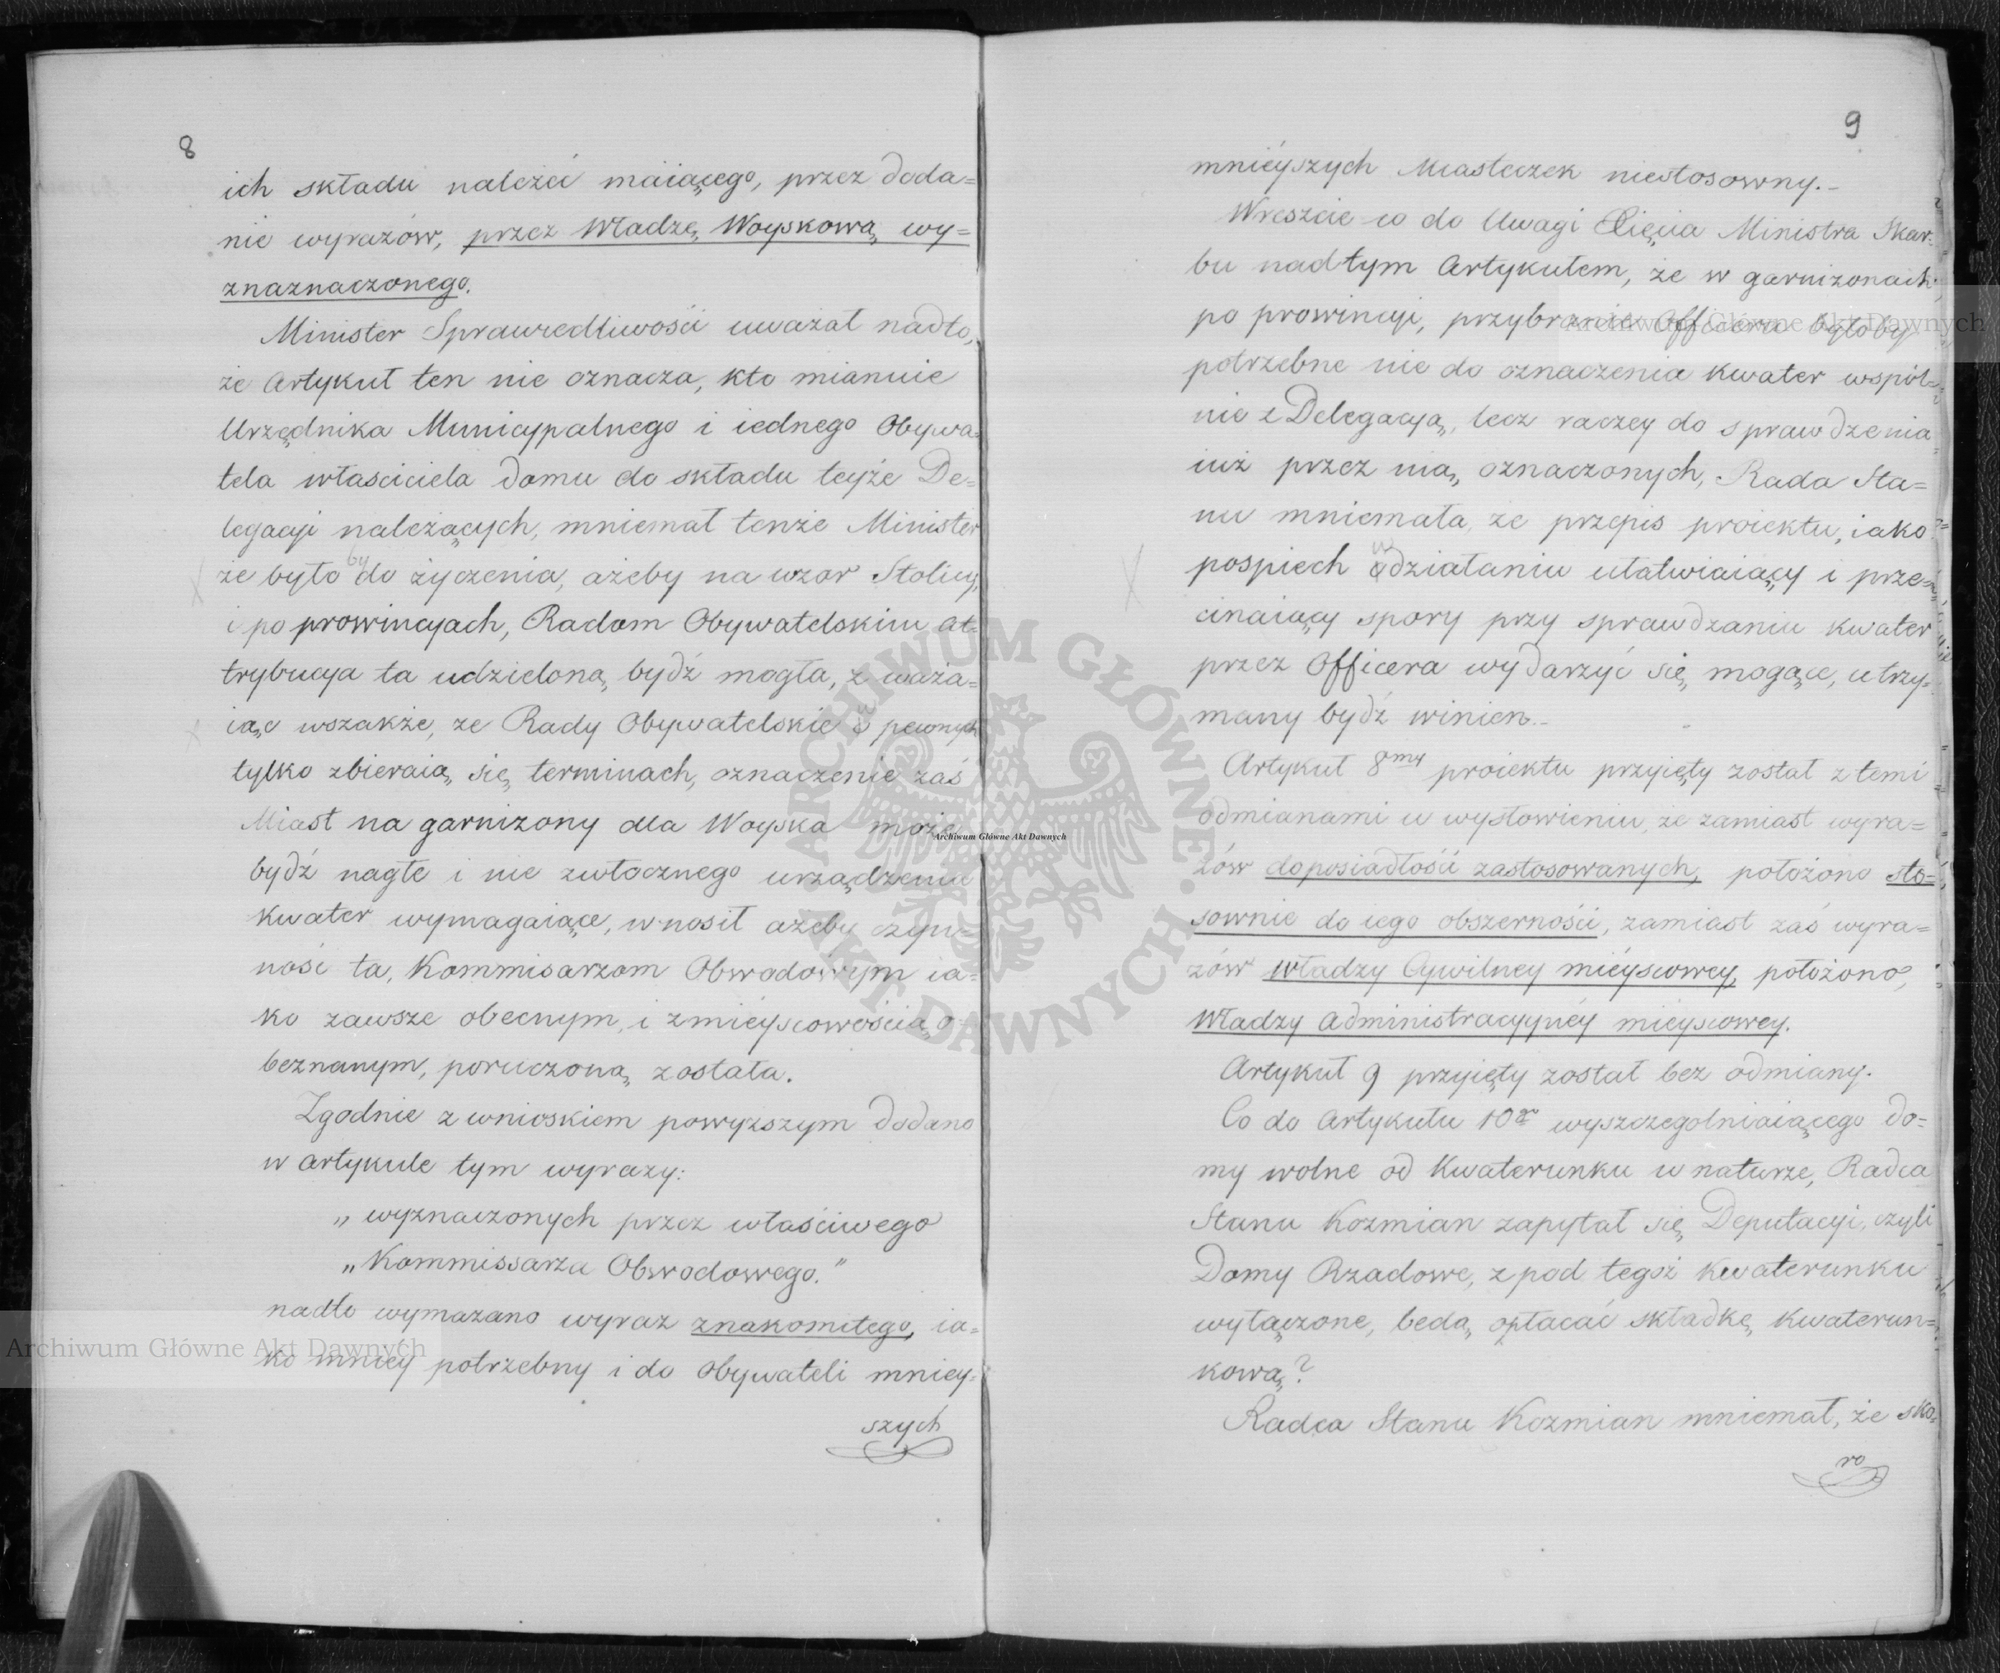 8
ich składu należeć maiącego, przez doda=
nie wyrazów, przez Władzę Woyskową wy=
znaznaczonego.
Minister Sprawiedliwości uważał nadto,
że Artykuł ten nie oznacza, kto mianuie
Urzędnika Municypalnego i iednego Obywa=
tela właściciela domu do składu teyże De=
legacyi należących, mniemał tenże Minister
że było by do życzenia, ażeby na wzor Stolicy,
i po prowincyach, Radom Obywatelskim at=
trybucya ta udzieloną bydź mogła, zważa=
iąc wszakże, że Rady Obywatelskie w pewnych
tylko zbieraią się terminach, oznaczenie zaś
Miast na garnizony dla Woyska może
bydź nagłe i nie zwłocznego urządzenia
kwater wymagaiące, wnosił ażeby czyn=
ność ta, Kommisarzom Obwodowym ia=
ko zawsze obecnym, i z mieyscowością o=
beznanym, poruczoną została.
Zgodnie z wnioskiem powyższym dodano
w artykule tym wyrazy:
„wyznaczonych przez właściwego
„Kommissarza Obwodowego."
nadto wymazano wyraz znakomitego, ia=
ko mniey potrzebny i do Obywateli mniey=
szych
9
mnieyszych Miasteczek niestosowny.-
Wreszcie co do Uwagi Xięcia Ministra Skar=
bu nad tym Artykułem, że w garnizonach
po prowincyi, przybranie Officera byłoby
potrzebne nie do oznaczenia kwater wspól=
nie z Delegacyą, lecz raczey do sprawdzenia
iuż przez nią oznaczonych, Rada Sta=
nu mniemała, że przepis proiektu, iako
pospiech w działaniu ułatwiaiący i prze=
cinaiący spory przy sprawdzaniu kwater
przez Officera wydarzyć się mogące, utrzy=
many bydź winien.-
Artykuł 8my proiektu przyięty został z temi
odmianami w wysłowieniu, że zamiast wyra=
zów do posiadłości zastosowanych, położono sto=
sownie do iego obszerności, zamiast zaś wyra=
zów władzy Cywilney mieyscowey, położono,
Władzy administracyyney mieyscowey.
Artykuł 9 przyięty został bez odmiany.
Co do Artykułu 10go wyszczególniaiącego do=
my wolne od Kwaterunku w naturze, Radca
Stanu Kozmian zapytał się Deputacyi, czyli
Domy Rządowe, z pod tegoż Kwaterunku
wyłączone, będą opłacać składkę kwaterun=
kową?
Radca Stanu Kozmian mniemał, że sko=
ro
Archiwum Główne Akt Dawnych
Archiwum Główne Akt Dawnych
Archiwum Główne Akt Dawnych
ARCHIWUM GŁÓWNE AKT DAWNYCH